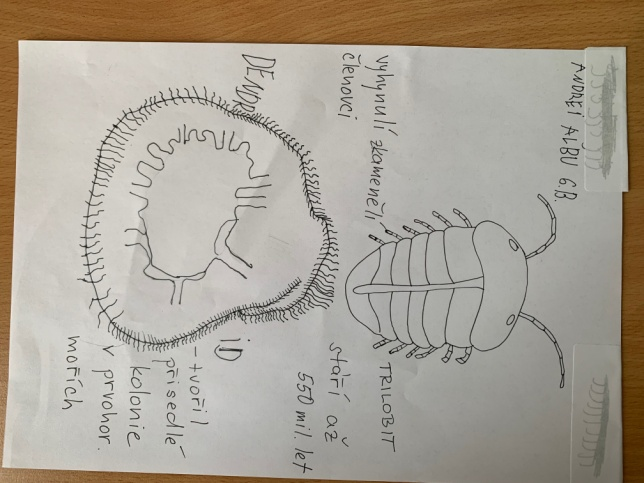 ANDREI ALBU 6.B
vyhynulí zkamenělí
členovci
TRILOBIT
stáří až
550 mil. let
DENDR
iD
- tvořil
přisedlé
kolonie
v prvohor.
mořích